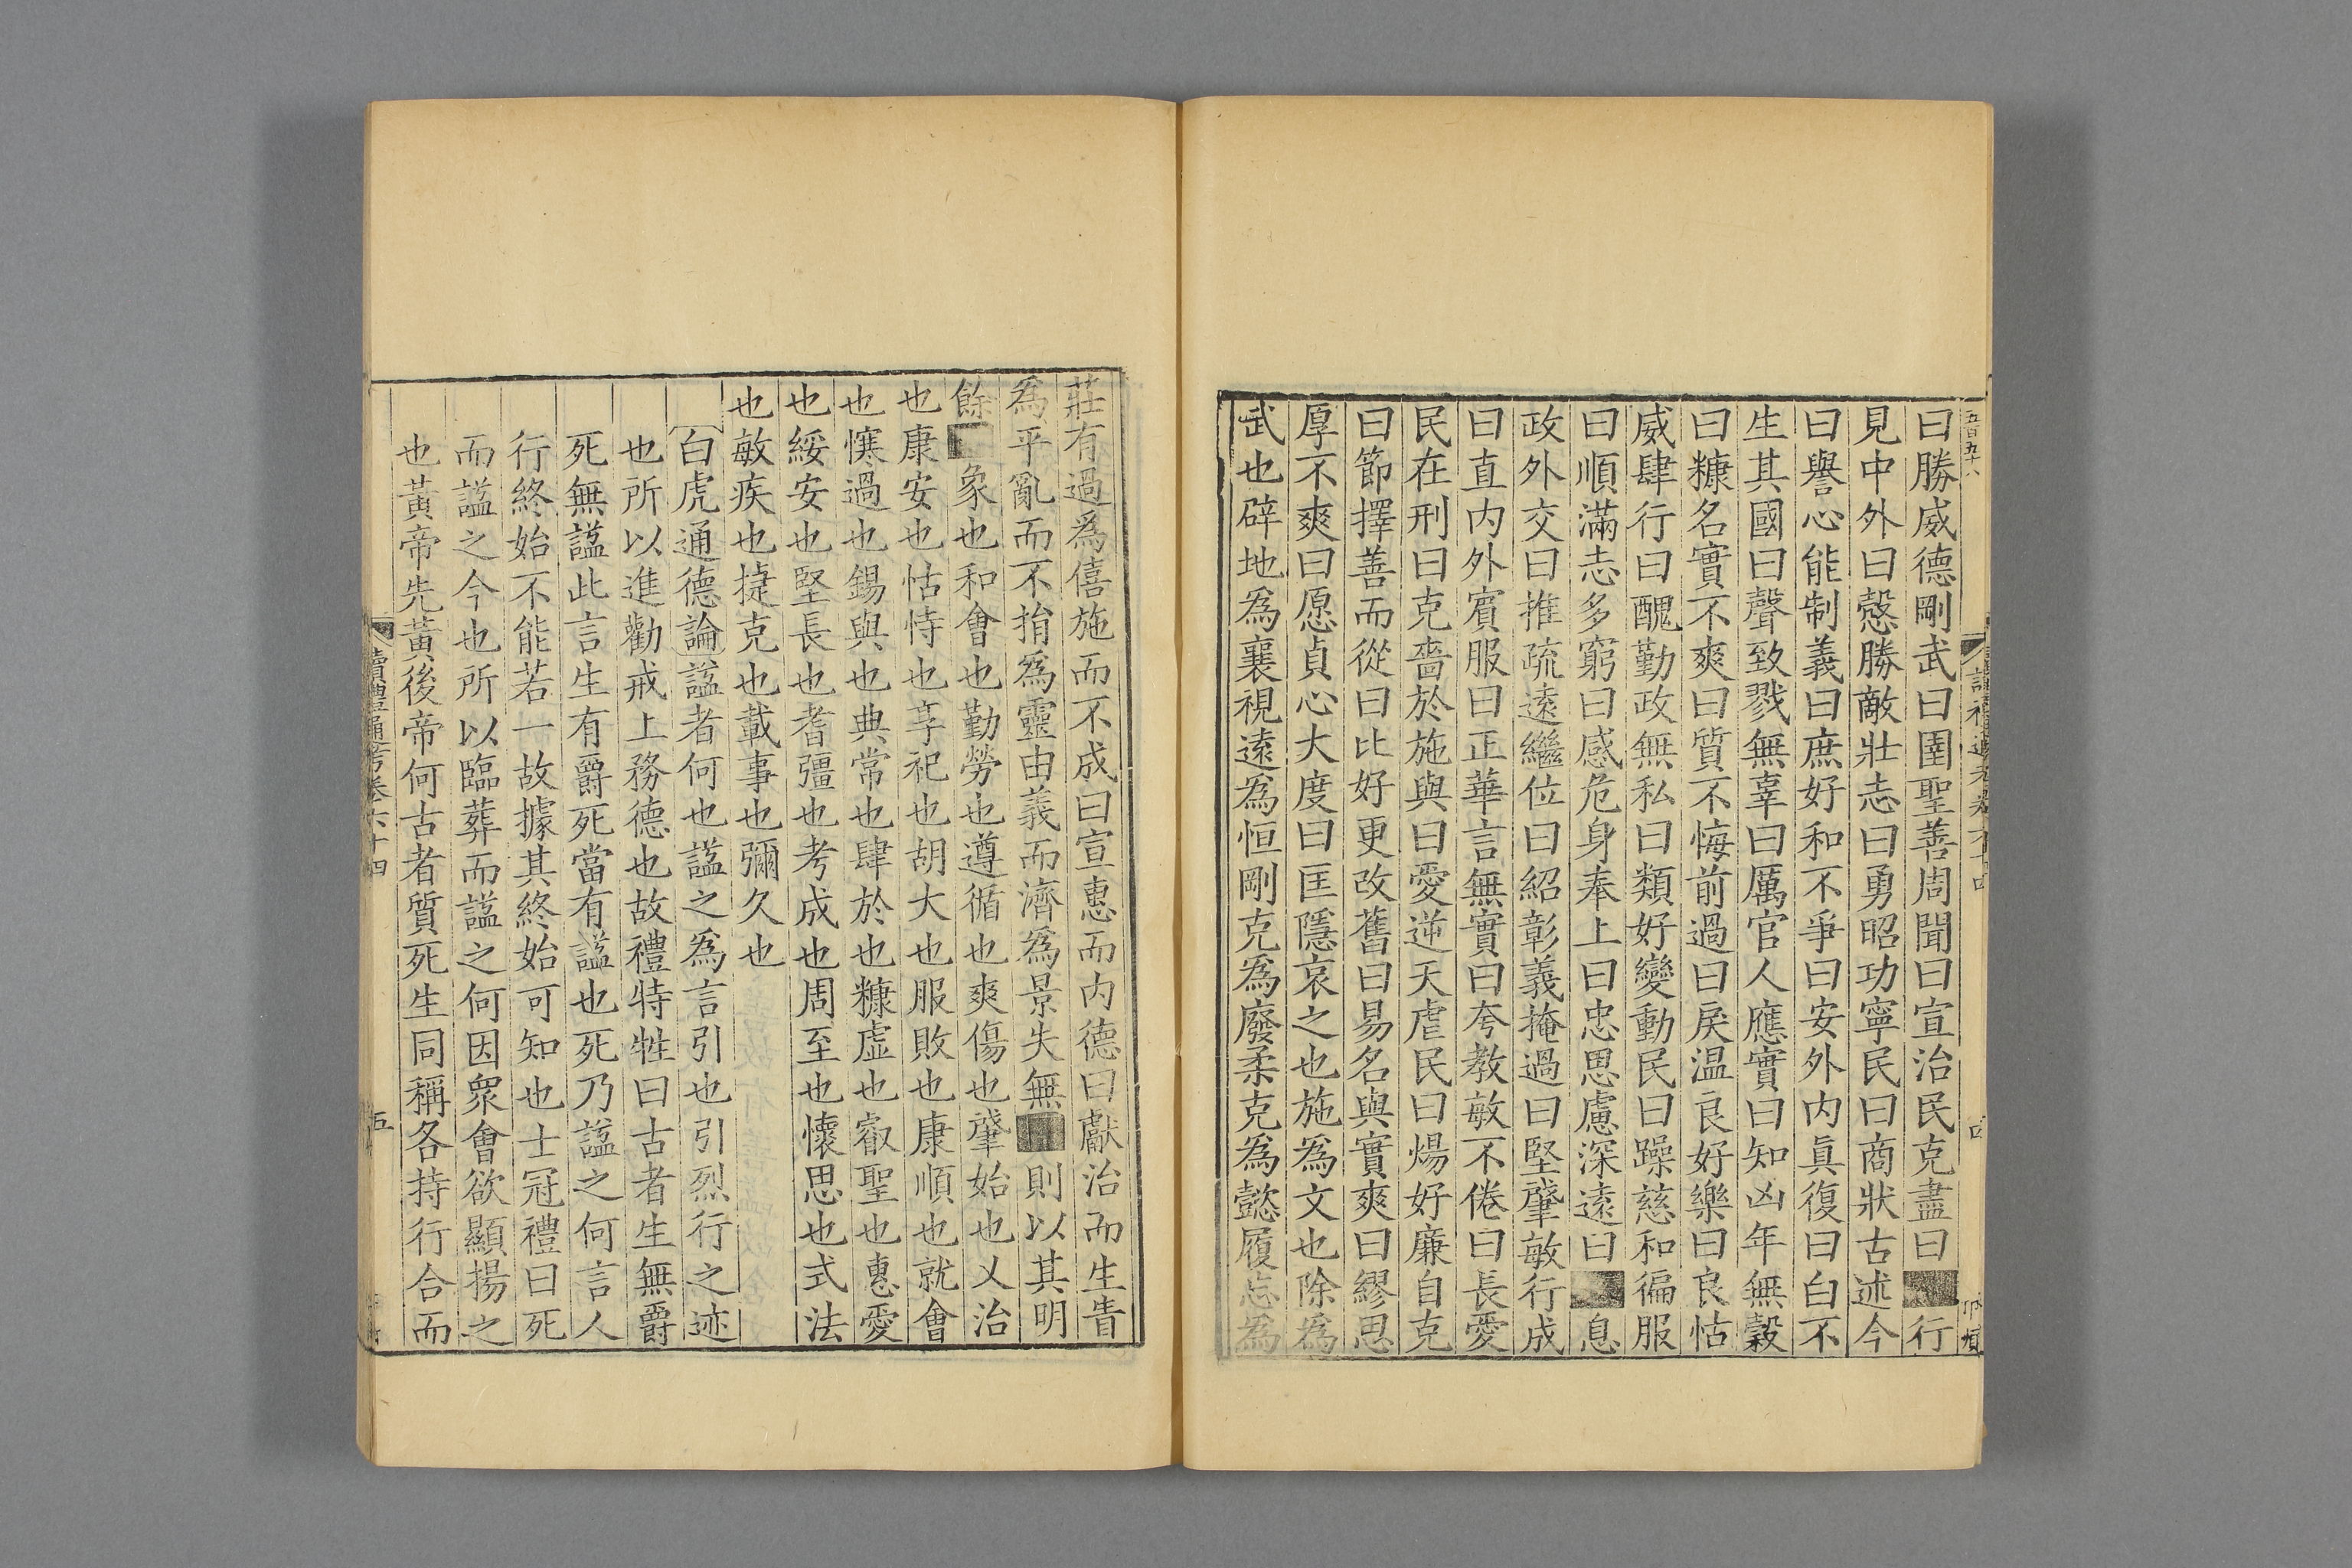 五百九十八
曰勝威德剛武曰圉聖善周聞曰宣治民克盡曰■行
見中外曰愨勝敵壯志曰勇昭功寧民曰商狀古述今
曰譽心能制義曰庶好和不爭曰安外内眞復曰白不
生其國曰聲致戮無辜曰厲官人應實曰知凶年無穀
曰糠名實不爽曰質不悔前過曰戾温良好樂曰良怙
威肆行曰醜勤政無私曰類好變動民曰躁慈和徧服
曰順滿志多窮曰感危身奉上曰忠思慮深遠曰■息
政外交曰推疏遠繼位曰紹彰義掩過曰堅肇敏行成
曰直内外賓服曰正華言無實曰夸教敏不倦曰長愛
民在刑曰克嗇於施與曰愛逆天虐民曰煬好廉自克
曰節擇善而從曰比好更改舊曰易名與實爽曰繆思
厚不爽曰愿貞心大度曰匡隱哀之也施爲文也除爲
武也辟地爲襄視遠爲恒剛克爲廢柔克爲懿履志爲
莊有過爲僖施而不成曰宣惠而内德曰獻治而生眚
爲平亂而不㨆爲靈由義而濟爲景失無■則以其明
餘■象也和會也勤勞也遵循也爽傷也肇始也乂治
也康安也怙恃也享祀也胡大也服敗也康順也就會
也㦥過也錫與也典常也肆於也糠虛也叡聖也惠愛
也綏安也堅長也耆彊也考成也周至也懷思也式法
也敏疾也捷克也載事也彌久也
白虎通德論謚者何也謚之爲言引也引烈行之迹
也所以進勸戒上務德也故禮特牲曰古者生無爵
死無謚此言生有爵死當有謚也死乃謚之何言人
行終始不能若一故據其終始可知也士冠禮曰死
而謚之今也所以臨葬而謚之何因衆會欲顯揚之
也黃帝先黃後帝何古者質死生同稱各持行合而
讀禮通考卷六十四
五